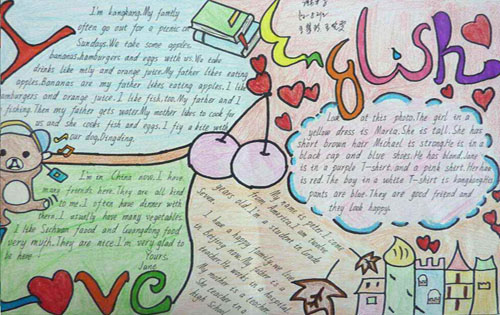 I'm kangkang. My family
often go out for a picnic on
Sundays. We take some apples,
bananas, hamburgers and eggs with us. We take
drinks like milk and orange juice. My father likes eating
apples. Bananas are my father likes eating apples. I like
hamburgers and orange juice. I like fish, too. My father and I
fishing. Then my father gets water. My mother likes to cook for
us and she cook fish and eggs. I fly a bite with
our dog, Dingding.
I'm in China now. I have
many friends here. They are all kind
to me. I often have dinner with
them. I usually have many vegetables.
I like Sichuan food and Guangdong food
very much. They are nice. I'm very glad to
be here!
Yours,
Jane
Love
English
Look at this photo. The girl in a
yellow dress is Maria. She is tall. She has
short brown hair. Michael is strong. He is in a
black cap and blue shoes. He has blond. Jane
is in a purple T-shirt and a pink skirt. Her hair
is red. The boy in a white T-shirt is kangkang. His
pants are blue. They are good friend and
they look happy.
My name is
from America. I'm twelve
years old. I'm a student in Grade
Seven.
I have a happy family. we live
in Beijing now. My father is a
He works in a hospital.
My mother is a teacher.
She teacher in a
high school